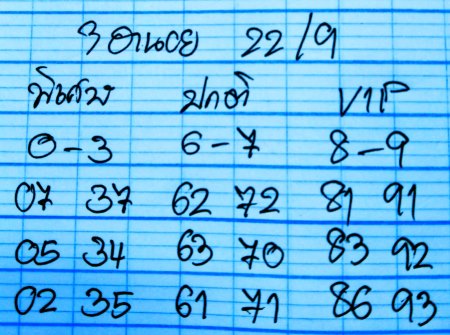 ฮานอย 22/9
พิเศษ ปกติ VIP
0-3 6-7 8-9
07 37 62 72 81 91
05 34 63 70 83 92
02 35 61 71 86 93